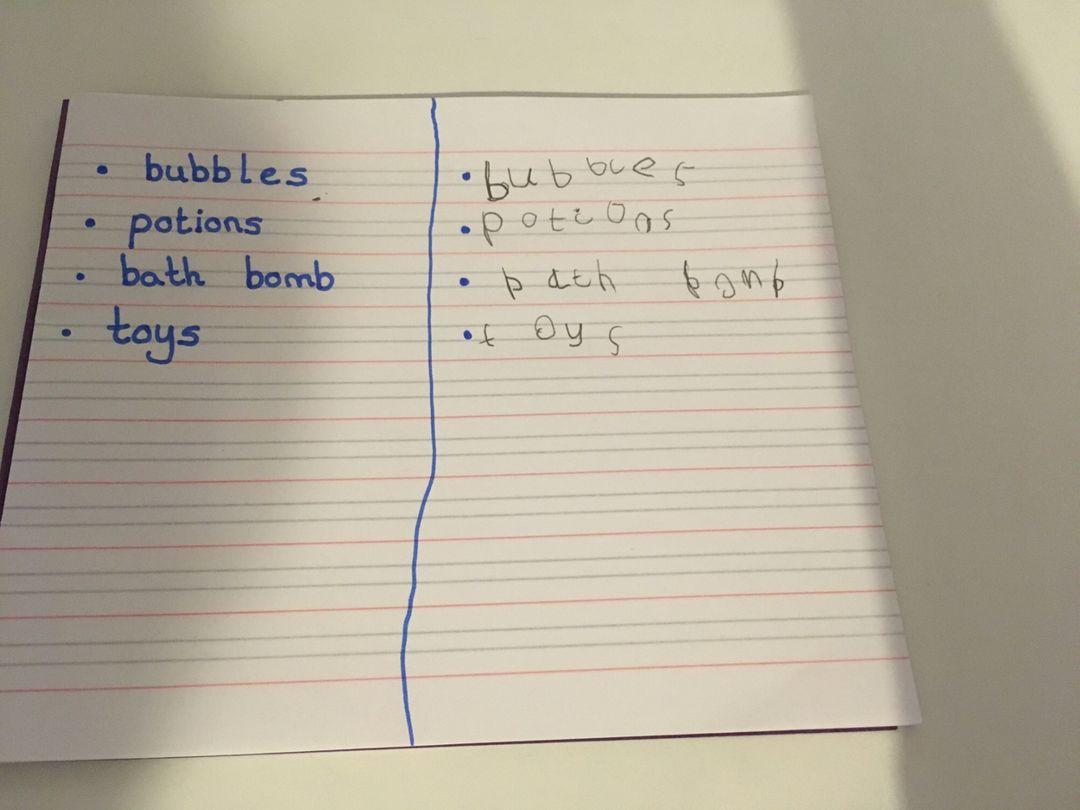 • bubbles • bubbles
• potions • potions
• bath bomb • path pomp
• toys • toys